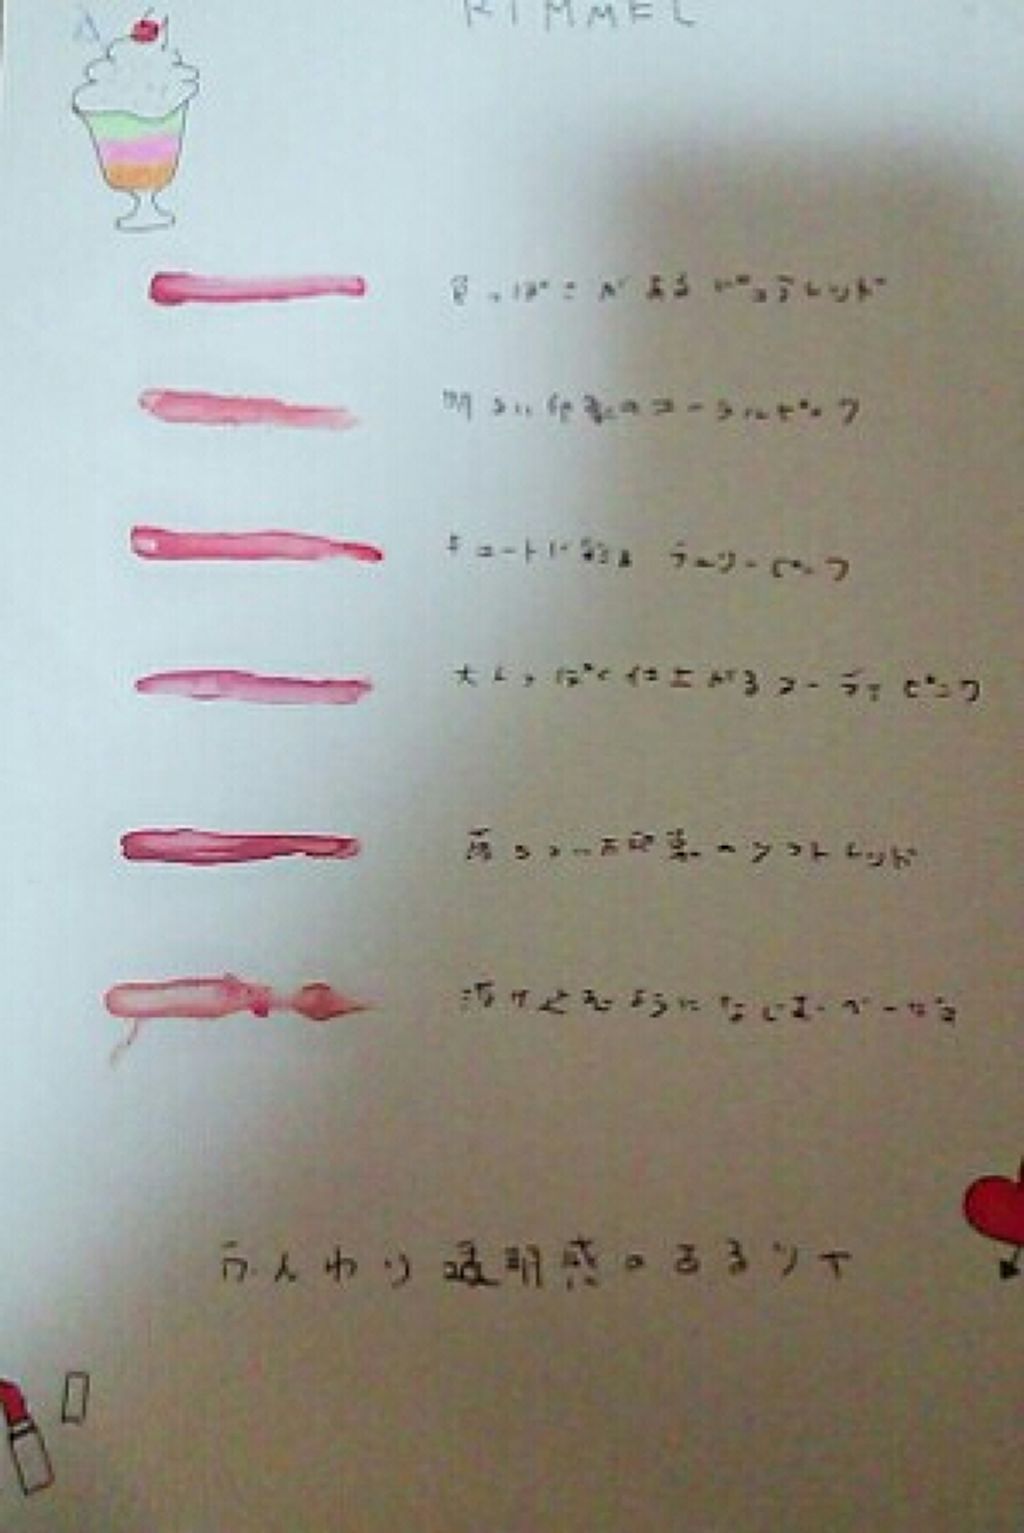 RIMMEL
色っぽさがあるピュアレッド
明るい印象のコーラルピンク
キュートに彩る チェリーピンク
大人っぽく仕上がるヌーディピンク
落ちついた印象のソフトレッド
溶け込むようになじむ ベージュ
ふんわり透明感のあるツヤ